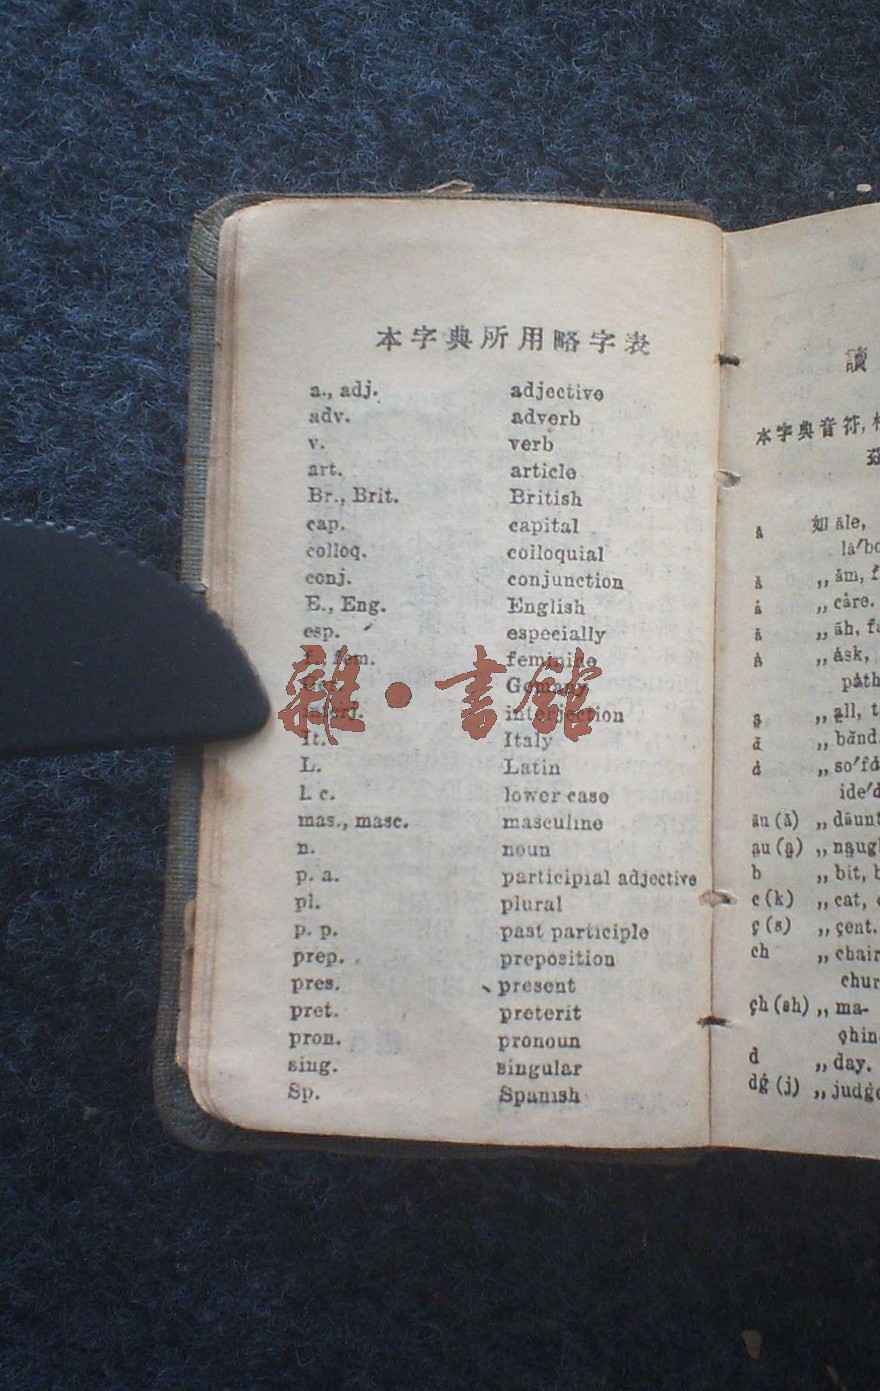 本字典所用略字表
a., adj. adjective
adv. adverb
v. verb
art. article
Br., Brit. British
cap. capital
colloq. colloquial
conj. conjunction
E., Eng. English
esp. especially
f., fem. feminine
Gemany
interj. interjection
It. Italy
L. Latin
l. c. lower case
mas., masc. masculine
n. noun
p. a. participial adjective
pl. plural
p. p. past participle
prep. preposition
pres. present
pret. preterit
pron. pronoun
sing. singular
Sp. Spanish
雜·書館
讀
本字典音符,
茲
ā 如 āle,
lā′
ă ,, ăm, f
,, câre.
,, äh, fä
ȧ ,, ȧsk,
pȧth
,, all, t
,, bănd
,, so′fȧ
ide′
äu (ä) ,, däunt
au (a) ,, naugh
b ,, bit, b
c (k) ,, cat, c
ç (s) ,, çent.
ch ,, chair
chur
çh (sh) ,, ma-
çhin
d ,, day.
dġ (j) ,, judġe